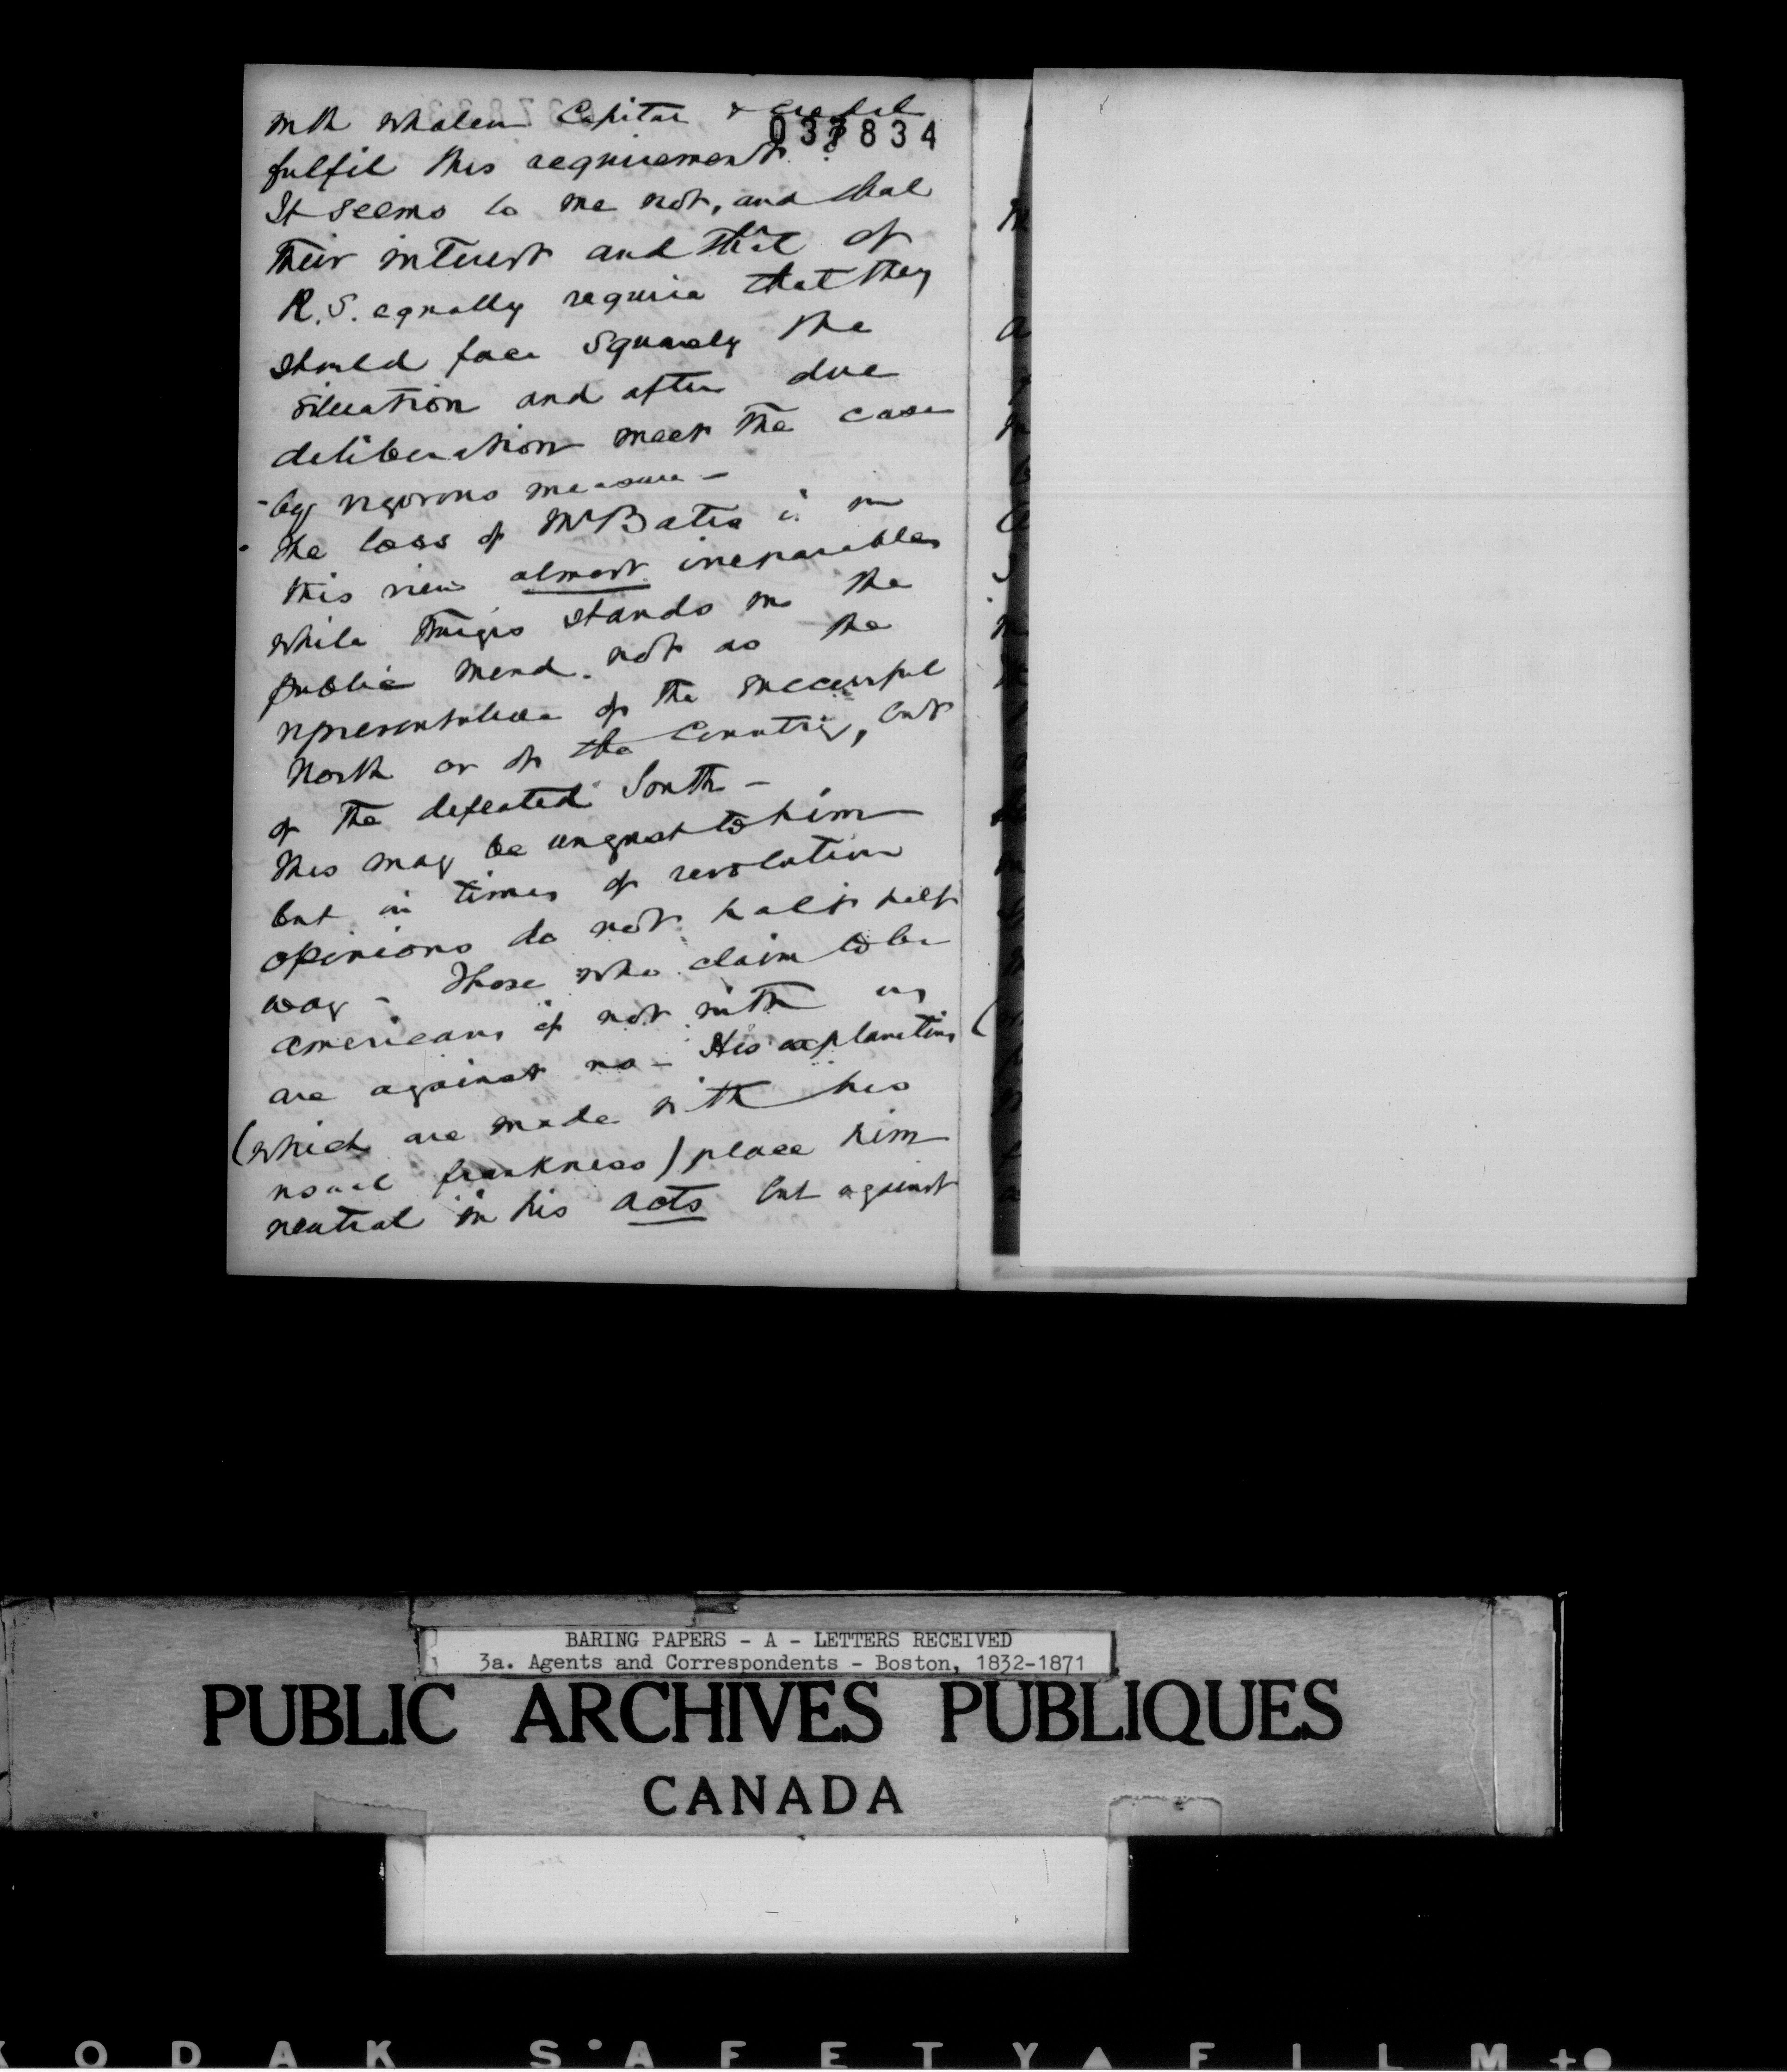 with whatever Capital & credit
037834
fulfil this requirement?
It seems to me not, and that
their interest and that of
R.S. equally require that they
should face squarely the
situation and after due
deliberation meet the case
by vigorous measure -
The loss of Mr Bates is in
this view almost irreparable
while Sturgis stands in the
public mind not as the
representative of the successful
North or of the Country, but
of the defeated South -
This may be unjust to him
but in times of revolution
opinions do not halt half
way - Those who claim to be
Americans if not with us
are against us - His explanations
(which are made with his
usual frankness) place him
neutral in his acts but against
BARING PAPERS - A - LETTERS RECEIVED
3a. Agents and Correspondents - Boston, 1832-1871
PUBLIC ARCHIVES PUBLIQUES
CANADA
KODAK SAFETY FILM